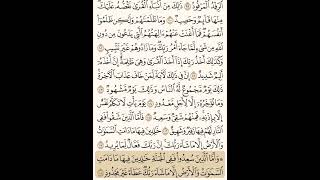 ٱلرِّفْدُ ٱلْمَرْفُودُ ۝ ذَٰلِكَ مِنْ أَنۢبَآءِ ٱلْقُرَىٰ نَقُصُّهُۥ عَلَيْكَ
مِنْهَا قَآئِمٌ وَحَصِيدٌ ۝ وَمَا ظَلَمْنَٰهُمْ وَلَٰكِن ظَلَمُوٓا۟
أَنفُسَهُمْ فَمَآ أَغْنَتْ عَنْهُمْ ءَالِهَتُهُمُ ٱلَّتِى يَدْعُونَ مِن دُونِ
ٱللَّهِ مِن شَىْءٍ لَّمَّا جَآءَ أَمْرُ رَبِّكَ وَمَا زَادُوهُمْ غَيْرَ تَتْبِيبٍ ۝
وَكَذَٰلِكَ أَخْذُ رَبِّكَ إِذَآ أَخَذَ ٱلْقُرَىٰ وَهِىَ ظَٰلِمَةٌ إِنَّ أَخْذَهُۥٓ
أَلِيمٌ شَدِيدٌ ۝ إِنَّ فِى ذَٰلِكَ لَءَايَةً لِّمَنْ خَافَ عَذَابَ ٱلْءَاخِرَةِ
ذَٰلِكَ يَوْمٌ مَّجْمُوعٌ لَّهُ ٱلنَّاسُ وَذَٰلِكَ يَوْمٌ مَّشْهُودٌ ۝
وَمَا نُؤَخِّرُهُۥٓ إِلَّا لِأَجَلٍ مَّعْدُودٍ ۝ يَوْمَ يَأْتِ لَا تَكَلَّمُ نَفْسٌ
إِلَّا بِإِذْنِهِۦ فَمِنْهُمْ شَقِىٌّ وَسَعِيدٌ ۝ فَأَمَّا ٱلَّذِينَ شَقُوا۟ فَفِى
ٱلنَّارِ لَهُمْ فِيهَا زَفِيرٌ وَشَهِيقٌ ۝ خَٰلِدِينَ فِيهَا مَا دَامَتِ ٱلسَّمَٰوَٰتُ
وَٱلْأَرْضُ إِلَّا مَا شَآءَ رَبُّكَ إِنَّ رَبَّكَ فَعَّالٌ لِّمَا يُرِيدُ ۝
وَأَمَّا ٱلَّذِينَ سُعِدُوا۟ فَفِى ٱلْجَنَّةِ خَٰلِدِينَ فِيهَا مَا دَامَتِ
ٱلسَّمَٰوَٰتُ وَٱلْأَرْضُ إِلَّا مَا شَآءَ رَبُّكَ عَطَآءً غَيْرَ مَجْذُوذٍ ۝